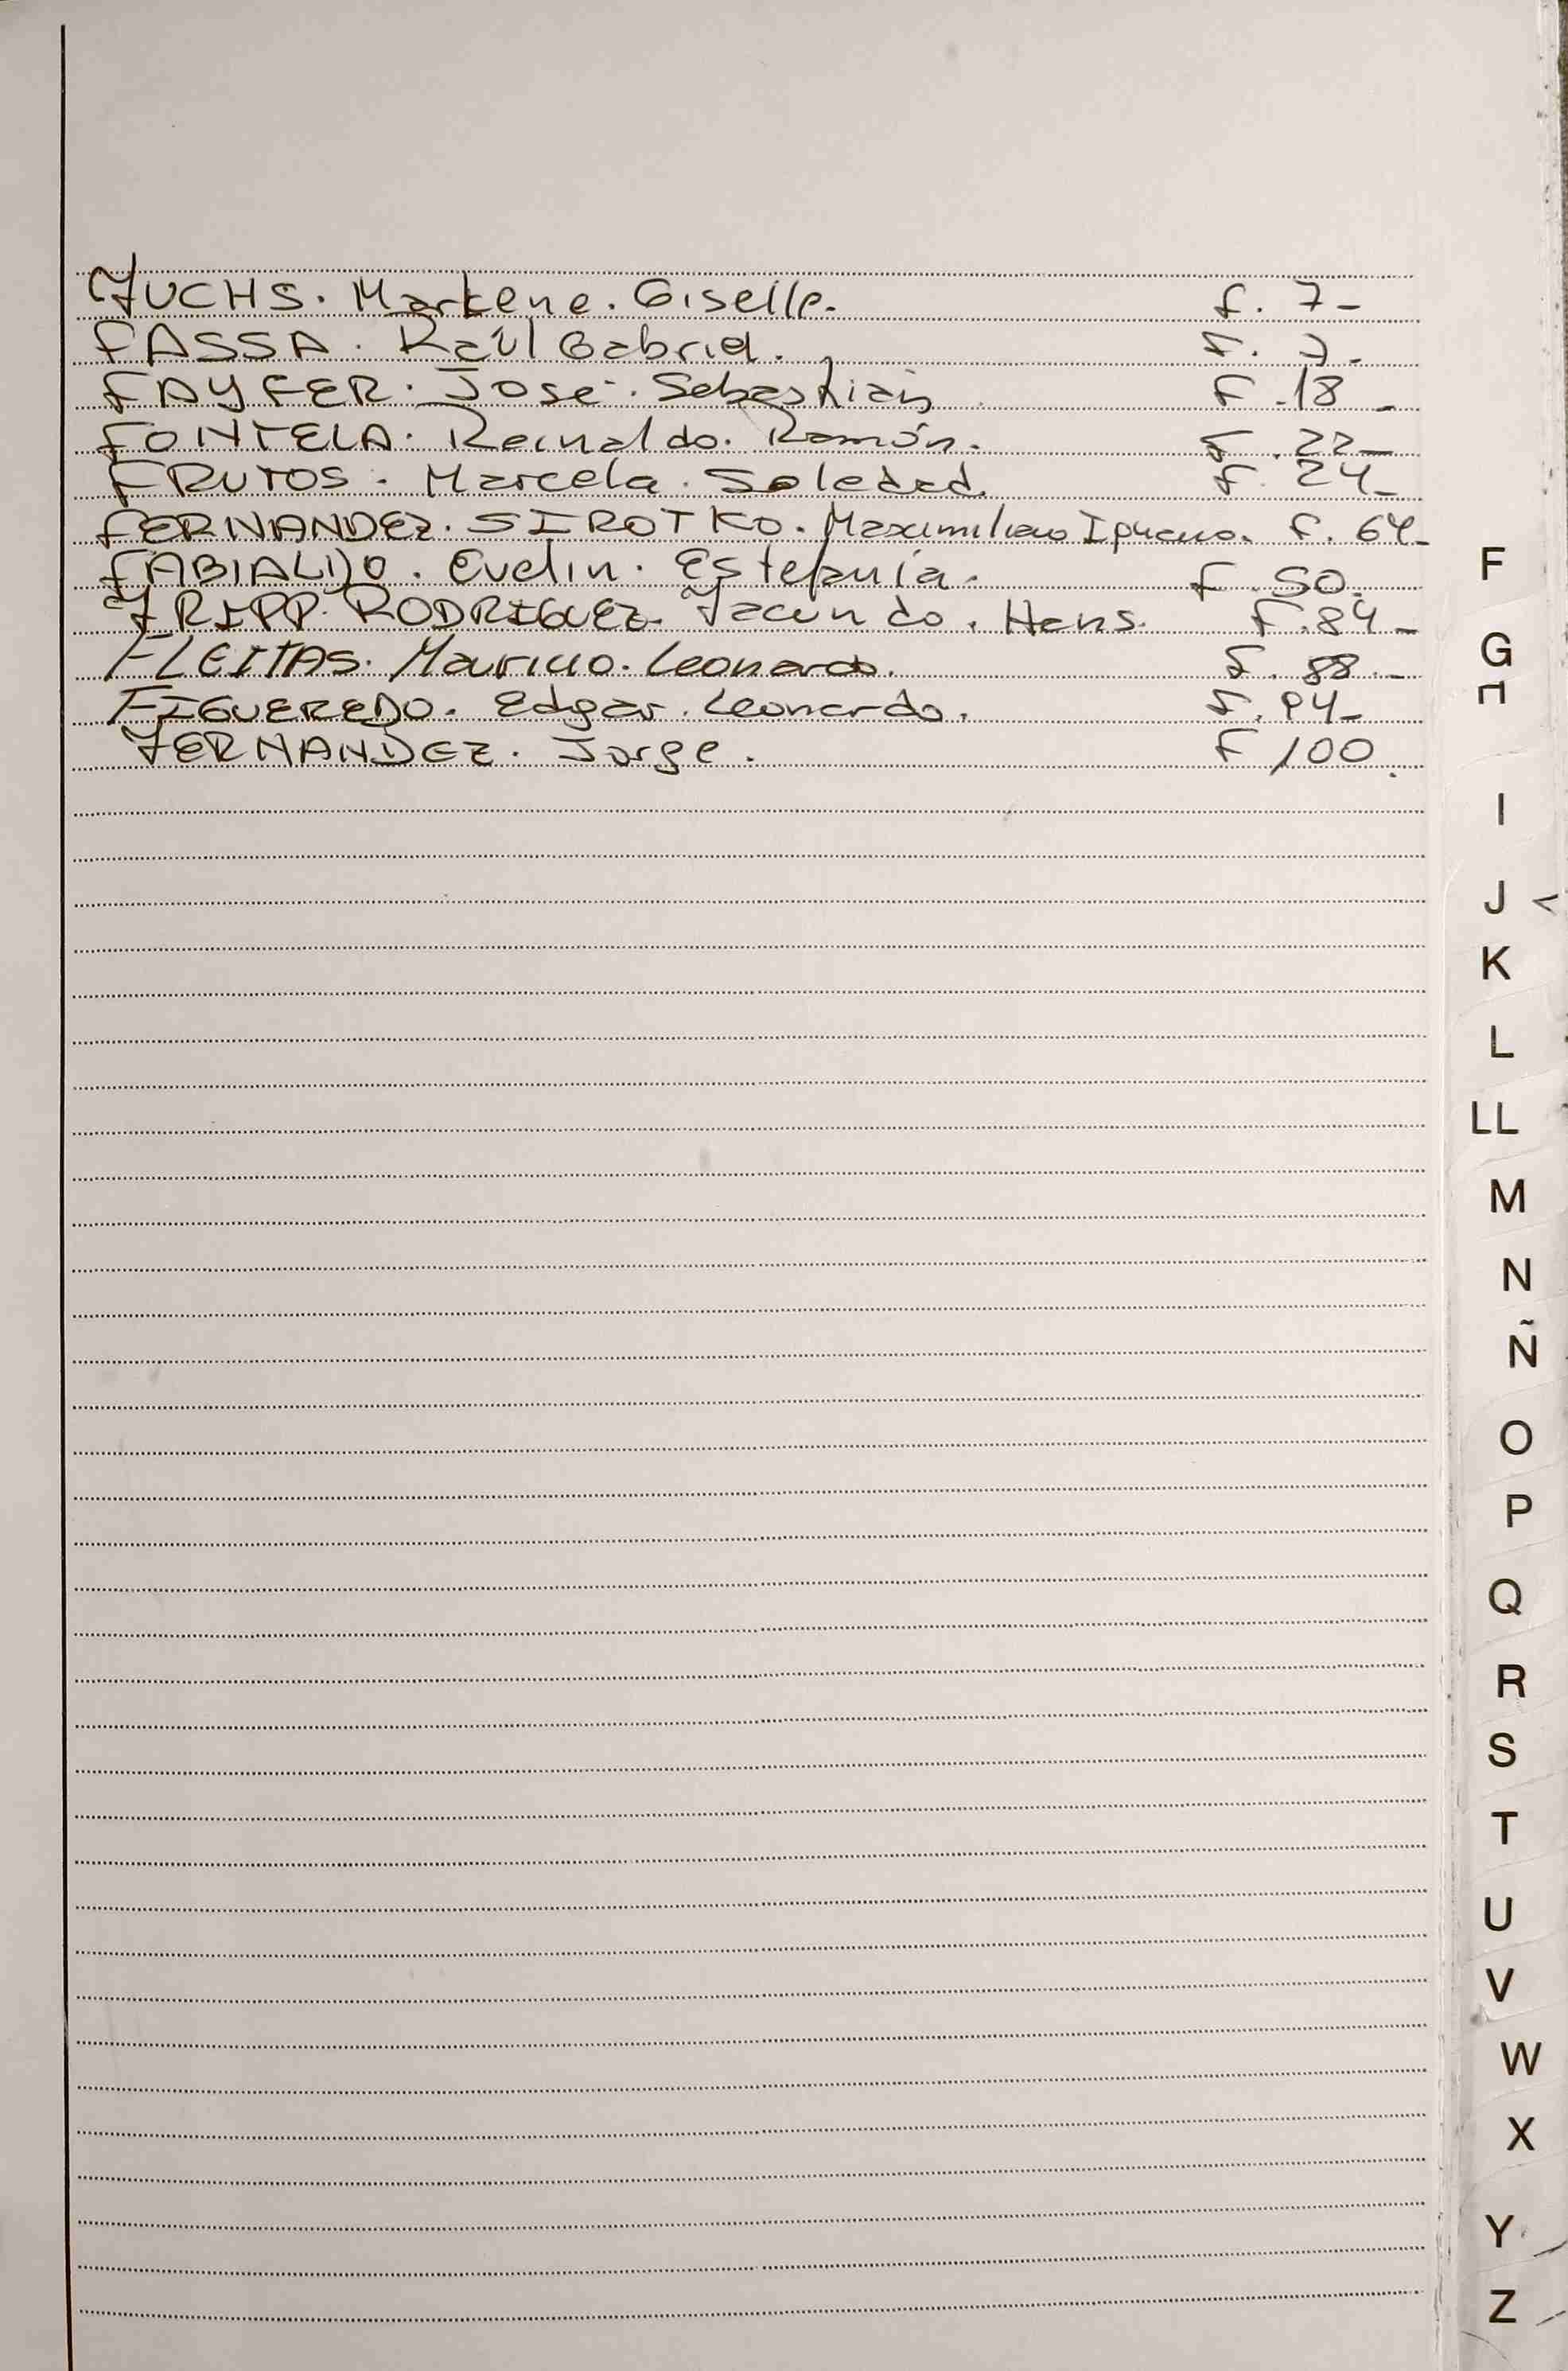 FUCHS. Marlene. Giselle. f. 7-
FASSA. Raúl Gabriel. F. 7-
FAYFER. José. Sebastián F. 18-
FONTELA. Reinaldo. Ramón. F. 22-
FRUTOS. Marcela. Soledad. F. 24-
FERNANDEZ. SIROTKO. Maximiliano Ignacio. F. 64-
Evelin. Estefanía. F. 50.
FRIPP. RODRIGUEZ. Facundo. Hans. F. 84-
FLEITAS. Mauricio. Leonardo. F. 88.-
FIGUEREDO. Edgar. Leonardo. F. 94-
FERNANDEZ. Jorge. F 100.
F
G
I
J
K
L
LL
M
N
Ñ
O
P
Q
R
S
T
U
V
W
X
Y
Z